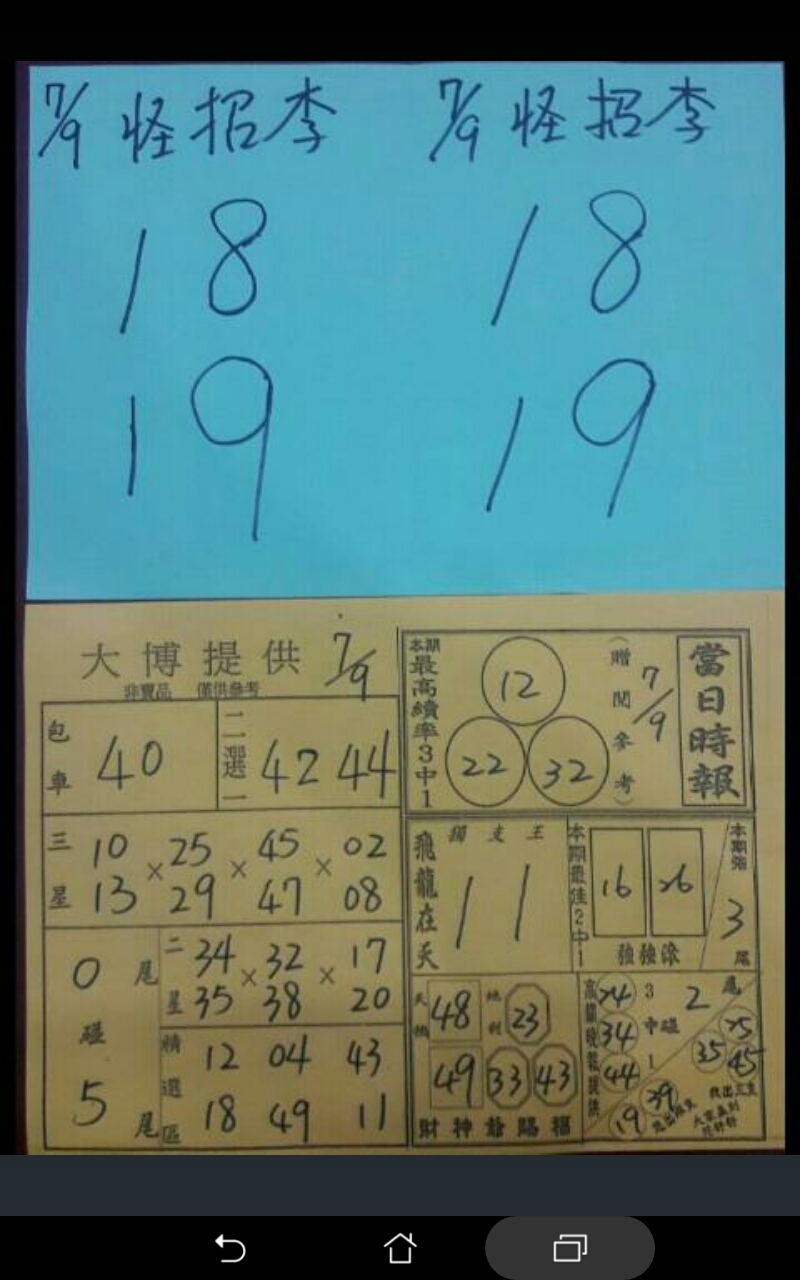 7/9 怪招李
18
19
7/9 怪招李
18
19
大博提供 7/9
非賣品 僅供參考
包車 40
二選一 42 44
三星
10 × 25 × 45 × 02
13 29 47 08
0尾
碰
5尾
二星
34 × 32 × 17
35 38 20
精選區
12 04 43
18 49 11
當日時報
7/9
(贈閱參考)
本期最高績率3中1
12
22 32
飛龍在天
獨支王
11
本期最佳2中1
16 26
強強滾
本期強
3尾
天機 48 地利 23
49 33 43
財神爺賜福
24 34 44
3中1
碰
2尾
25
35 45
19 39